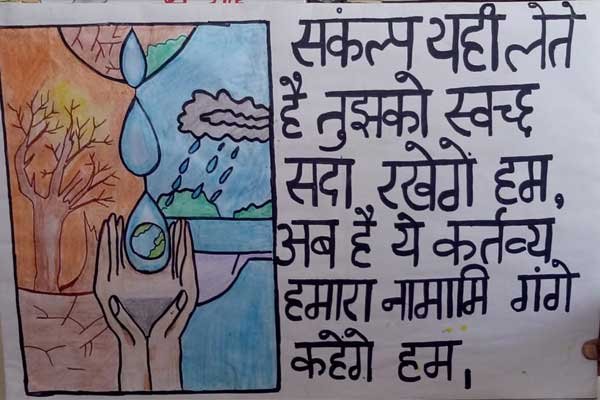 सकंल्प यही लेते
है तुझको स्वच्छ
सदा रखेगें हम,
अब है ये कर्तव्य
हमारा नामामि गंगे
कहेंगे हम,